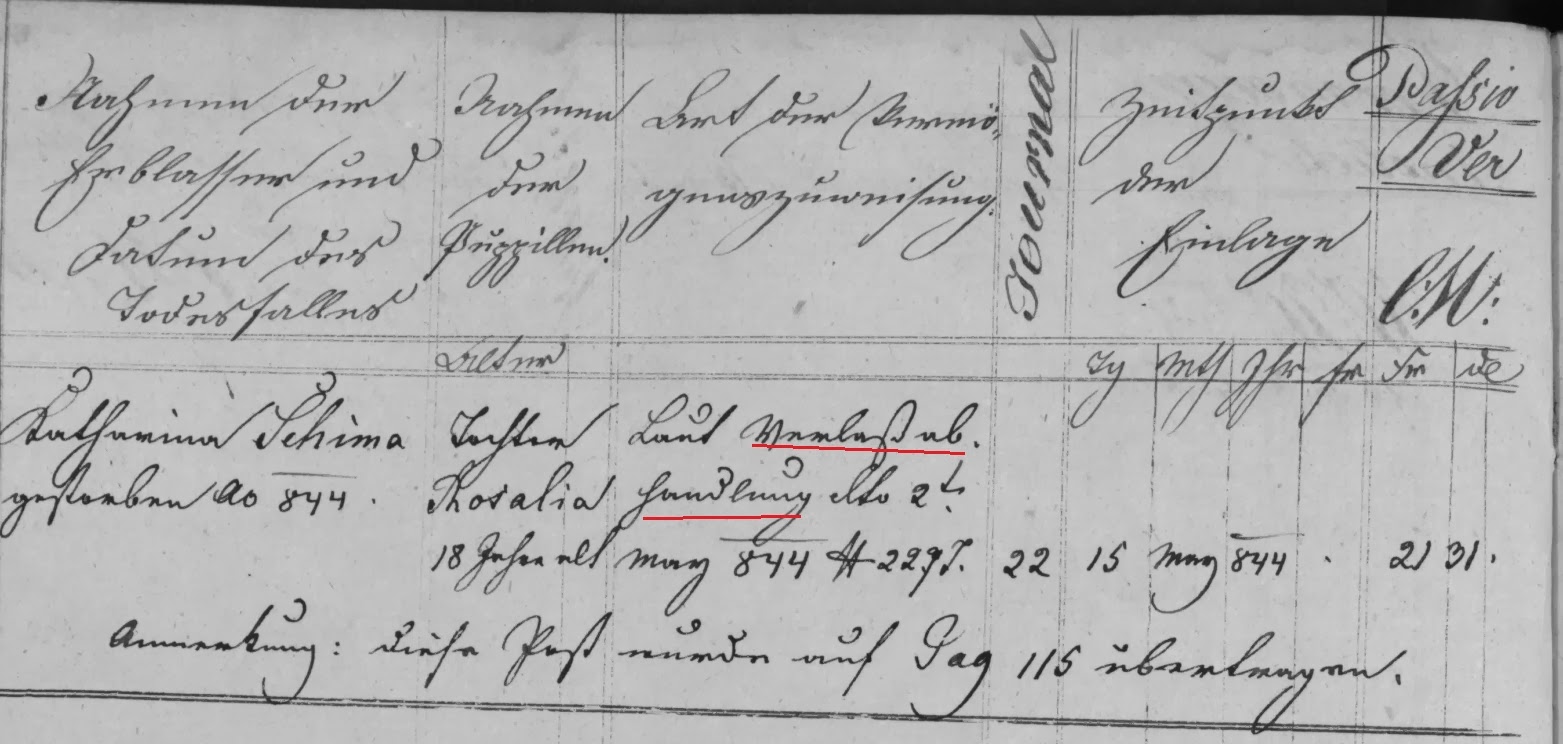 Nahmen der
Erblasser und
Datum des
Todesfalles
Nahmen
der
Puppillen.
Alter
Art der Vermö-
genszuweisung.
Journal
Zeitpunkt
der
Einlage
Passiv
Ver
C: M:
Tg Mth Jhr fr
Katharina Schima Tochter Laut Verlaß ab.
gestorben Ao 844. Rosalia handlung dto 2t:
18 Jahre alt May 844 22 15 May 844 . 21 31.
Anmerkung: diese Post wurde auf Pag 115 übertragen.